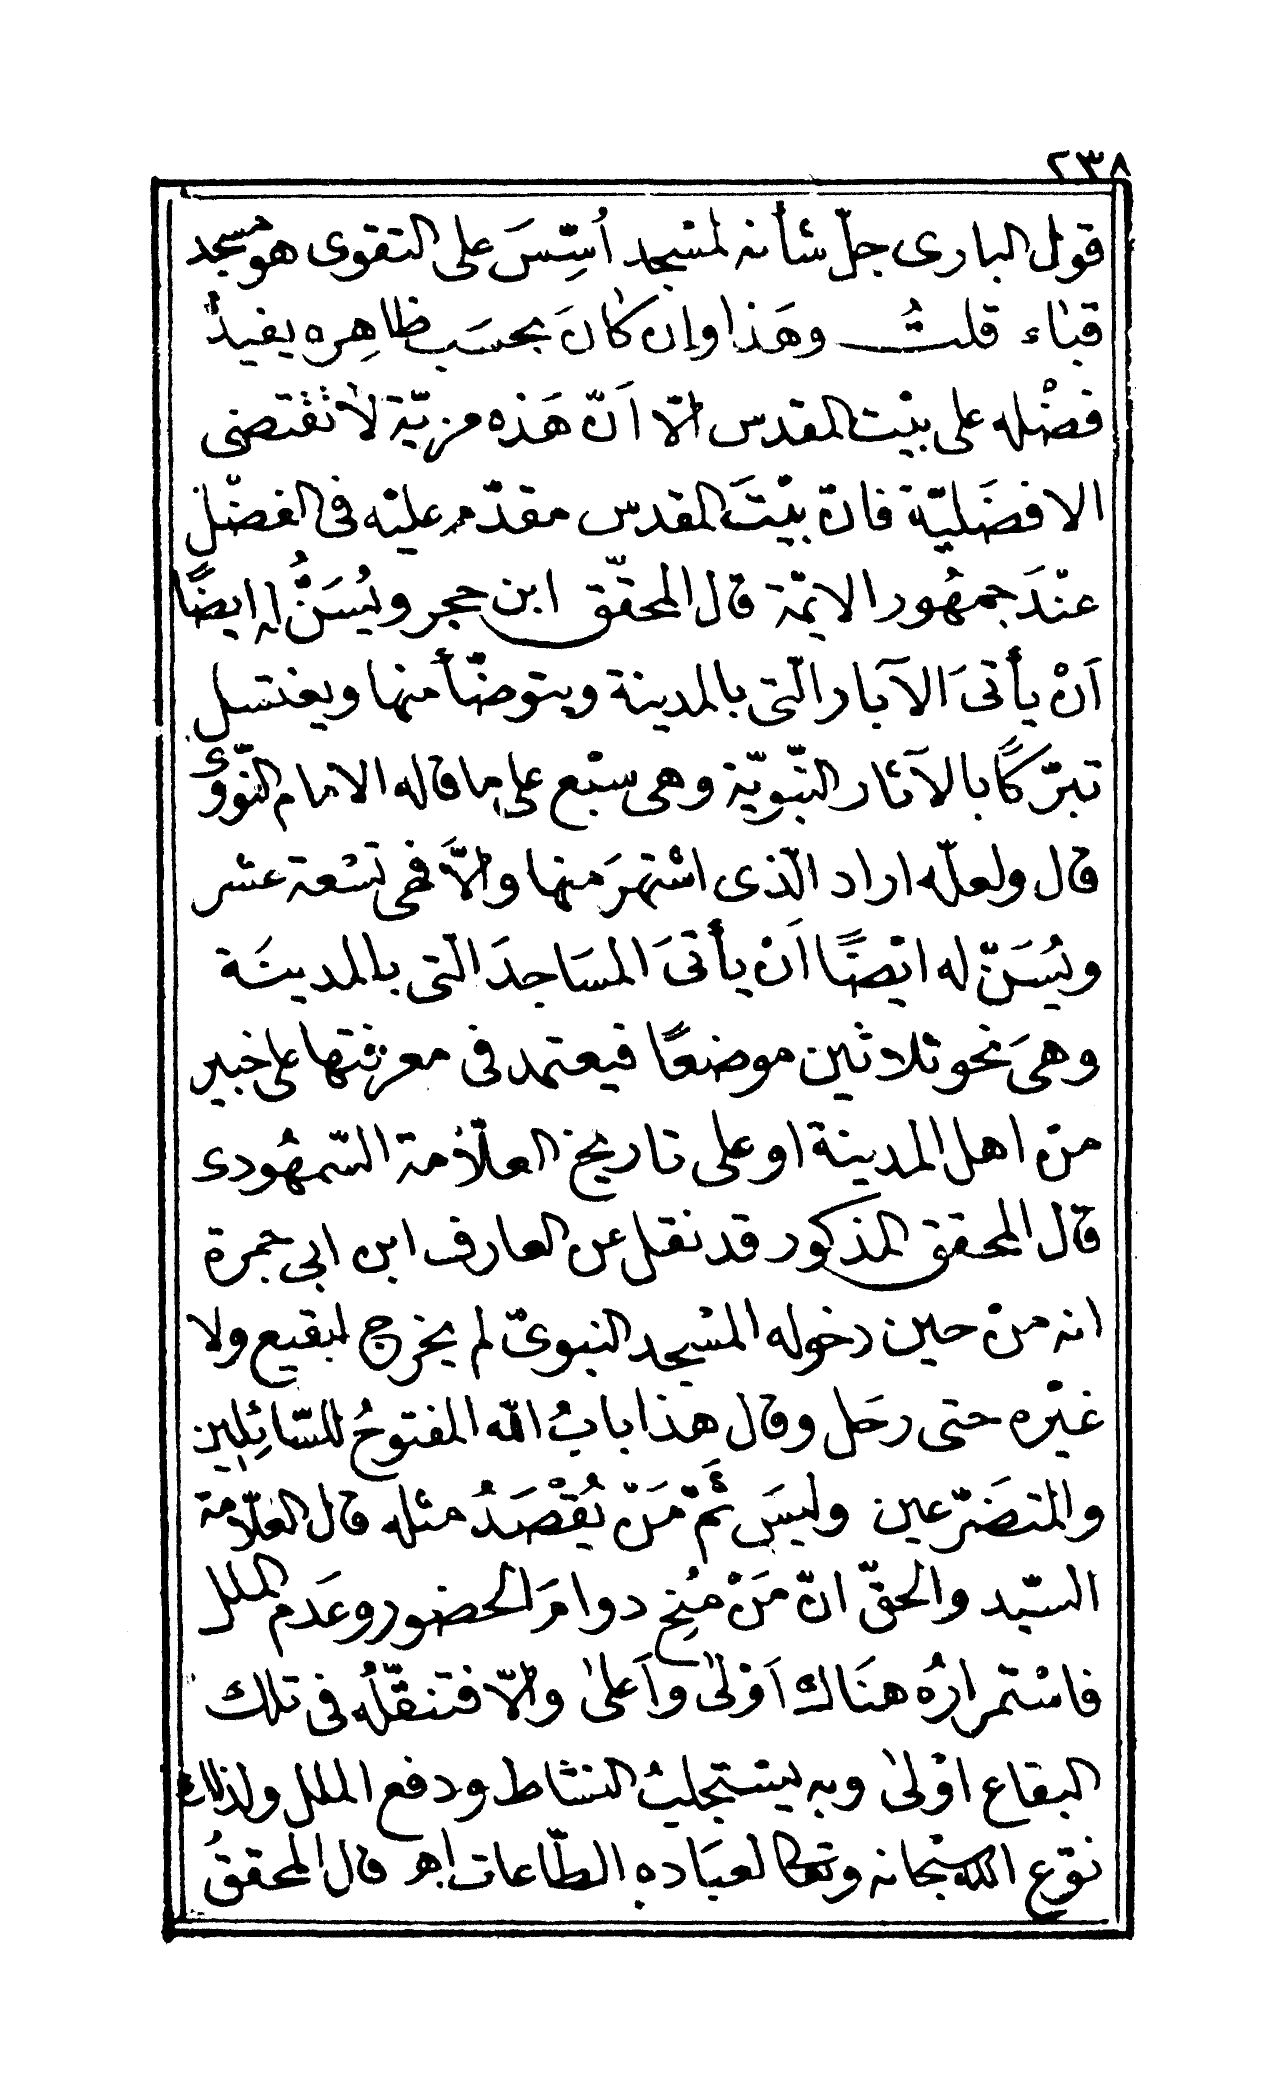 ٢٣٨
قول البارى جلّ شأنه لمسْجد اُسِّسَ على التقوى هو مسجد
قبَاء قلتُ وهَذا وإن كانَ بحسَب ظاهِره يفيدُ
فضْله على بيْت المقدس الّا اَنّ هَذه مزيّة لا تقْتضى
الافضَليّة فانّ بيْتَ المقدس مقدّم عليْه فى الفضْل
عنْدَ جمهُور الايمّة قال المحقّق ابن حجر ويُسَنُّ له ايضًا
اَنْ يأتىَ الآبار الّتى بالمدينة ويتوضّأ منها ويغتسل
تبرّكًا بالآثار النّبويّة وهى سبْع على ما قاله الامام النّووى
قال ولعلّه اراد الّذى اشْتهرَ منها والّا فهى تسْعة عشر
ويُسَنّ له ايْضًا اَنْ يأتىَ المسَاجدَ الّتى بالمدينَة
وهىَ نحو ثلاثين موضعًا فيعتمد فى معرفتها على خبير
منْ اهل المدينة او على تاريخ العلّامة السّمهُودى
قال المحقق المذكور قد نقل عن العارف ابن ابى جمرة
انه منْ حين دخوله المسْجد النبوىّ لم يخرج لبقيع ولا
غيْره حتى رحَل وقال هذا بابُ الله المفتوحُ للسّائِلين
والمتضَرّعين وليسَ ثَمّ مَنّ يُقْصَدُ مثله قال العلّامة
السّيد والحقّ انّ مَنْ مُنِح دوامَ الحضور وعَدم الملل
فاسْتمرارُه هنَاك اَوْلىٰ واَعلىٰ والّا فتنقّلُه فى تلك
البقاع اوْلىٰ وبه يسْتجلبُ النشاط ودفع الملل ولذلك
نوّع الله سبْحانه وتعالى لعبَاده الطّاعات اهـ قال المحققُ